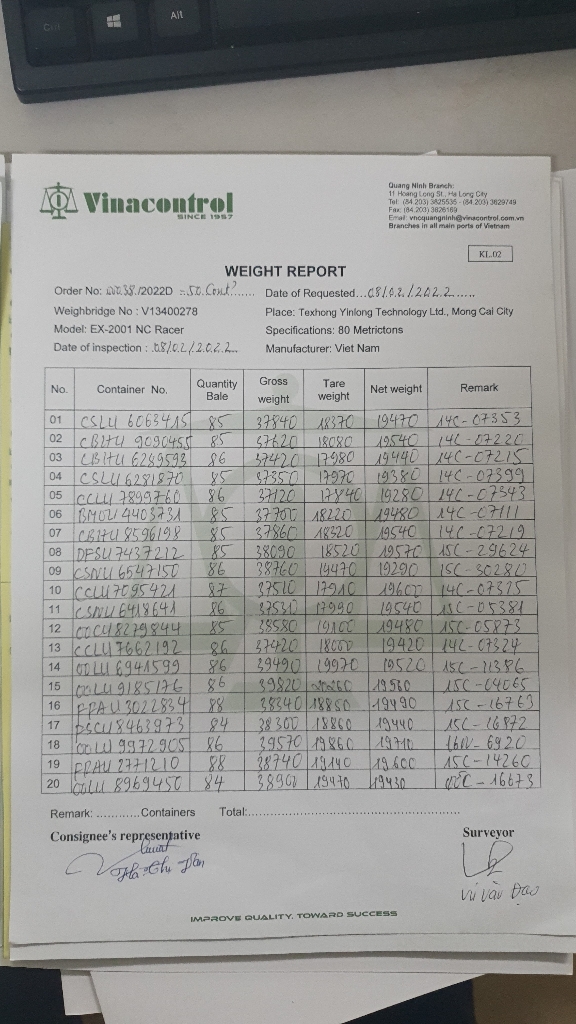 Ctrl
Alt
Vinacontrol
SINCE 1957
Quang Ninh Branch:
11 Hoang Long St., Ha Long City
Tel: (84.203) 3825535 - (84.203) 3629749
Fax: (84.203) 3826169
Email: vncquangninh@vinacontrol.com.vn
Branches in all main ports of Vietnam
KL.02
WEIGHT REPORT
Order No: 0038/2022D = 50 Cont' Date of Requested 08/02/2022
Weighbridge No : V13400278 Place: Texhong Yinlong Technology Ltd., Mong Cai City
Model: EX-2001 NC Racer Specifications: 80 Metrictons
Date of inspection : 08/02/2022 Manufacturer: Viet Nam
No. Container No. Quantity Bale Gross weight Tare weight Net weight Remark
01 CSLU 6063415 85 37840 18370 19470 14C-07353
02 CBHU 9090455 85 37620 18080 19540 14C-07220
03 CBHU 6289593 86 37420 17980 19440 14C-07215
04 CSLU 6281870 85 37350 17970 19380 14C-07399
05 CCLU 7899760 86 37120 17840 19280 14C-07343
06 BMOU 4403731 85 37700 18220 19480 14C-07111
07 CBHU 8596198 85 37860 18320 19540 14C-07219
08 DFSU 7437212 85 38090 18520 19570 15C-29624
09 CSNU 6547150 86 38760 19470 19290 15C-30280
10 CCLU 7095421 87 37510 17910 19600 14C-07375
11 CSNU 6418641 86 37530 17990 19540 15C-05381
12 OOCU 8279844 85 38580 19100 19480 15C-05873
13 CCLU 7662192 86 37420 18000 19420 14C-07324
14 OOLU 6941599 86 39490 19970 19520 15C-21386
15 OOLU 9185176 86 39820 20260 19560 15C-04065
16 FPAU 3022834 88 38340 18850 19490 15C-16763
17 DSCU 8463973 84 38300 18860 19440 15C-16872
18 OOLU 9972905 86 39570 19860 19710 16N-6920
19 FPAU 2771210 88 38740 19140 19600 15C-14260
20 OOLU 8969450 84 38900 19470 19430 15C-16673
Remark: ............Containers Total:
Consignee's representative Surveyor
Vũ Văn Đạo
IMPROVE QUALITY, TOWARD SUCCESS